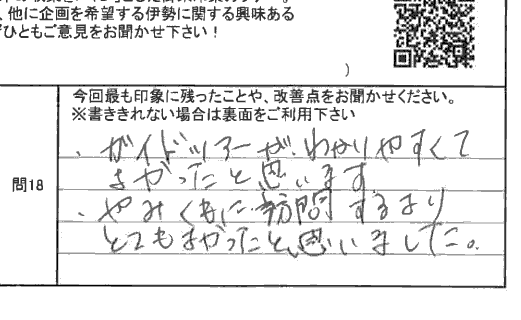 、他に企画を希望する伊勢に関する興味ある
ぜひともご意見をお聞かせ下さい！
）
今回最も印象に残ったことや、改善点をお聞かせください。
※書ききれない場合は裏面をご利用下さい
問18
・ガイドツアーが、わかりやすくて
よかったと思います
・やみくもに訪問するより
とてもよかったと思いました。